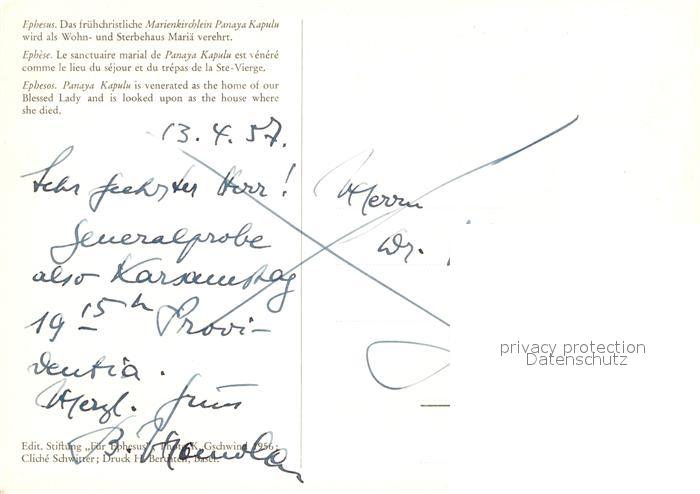 Ephesus. Das frühchristliche Marienkirchlein Panaya Kapulu
wird als Wohn- und Sterbehaus Mariä verehrt.
Ephèse. Le sanctuaire marial de Panaya Kapulu est vénéré
comme le lieu du séjour et du trépas de la Ste-Vierge.
Ephesos. Panaya Kapulu is venerated as the home of our
Blessed Lady and is looked upon as the house where
she died.
13.4.57.
Sehr geehrter Herr!
Generalprobe
also Karsamstag
19 15 h Provi-
dentia.
Herzl. Gruss
B.
Edit. Stiftung „Für Ephesus"; Photo K. Gschwind 1956;
Cliché Schwitter; Druck H. Basel.
Herrn
Dr.
privacy protection
Datenschutz